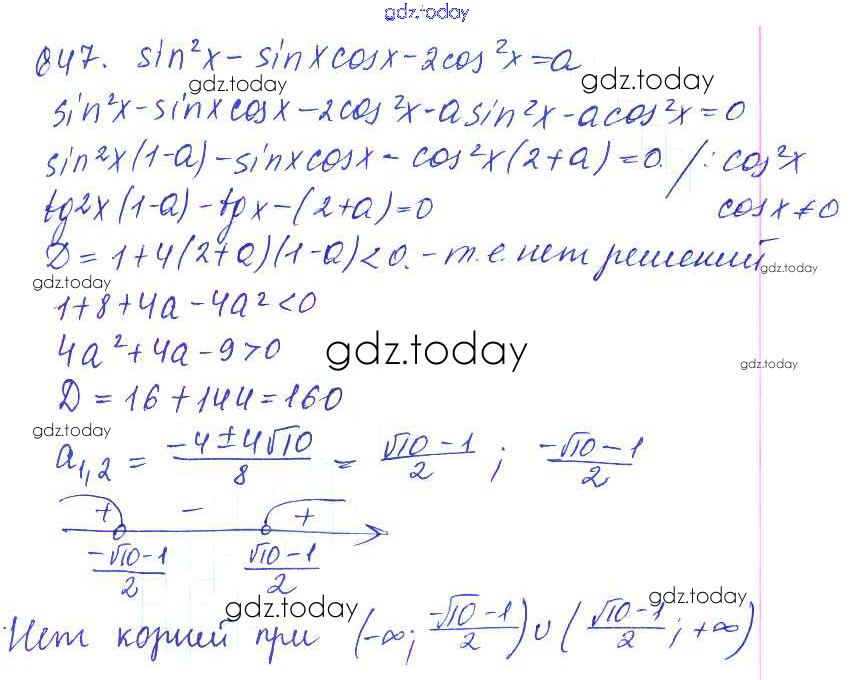 gdz.today
847. sin²x - sinxcosx - 2cos²x = a
gdz.today gdz.today
sin²x - sinxcosx - 2cos²x - asin²x - acos²x = 0
sin²x(1-a) - sinxcosx - cos²x(2+a) = 0. /: cos²x
tg²x(1-a) - tgx - (2+a) = 0 cosx ≠ 0
D = 1+4(2+a)(1-a) < 0. - т.е. нет решений
gdz.today gdz.today
1+8+4a-4a² < 0
4a²+4a-9>0 gdz.today gdz.today
D = 16+144=160
gdz.today
a₁,₂ = (-4±4√10)/8 = (√10-1)/2 ; (-√10-1)/2
+ - +
(-√10-1)/2 (√10-1)/2
gdz.today gdz.today
Нет корней при (-∞; (-√10-1)/2) ∪ ((√10-1)/2; +∞)